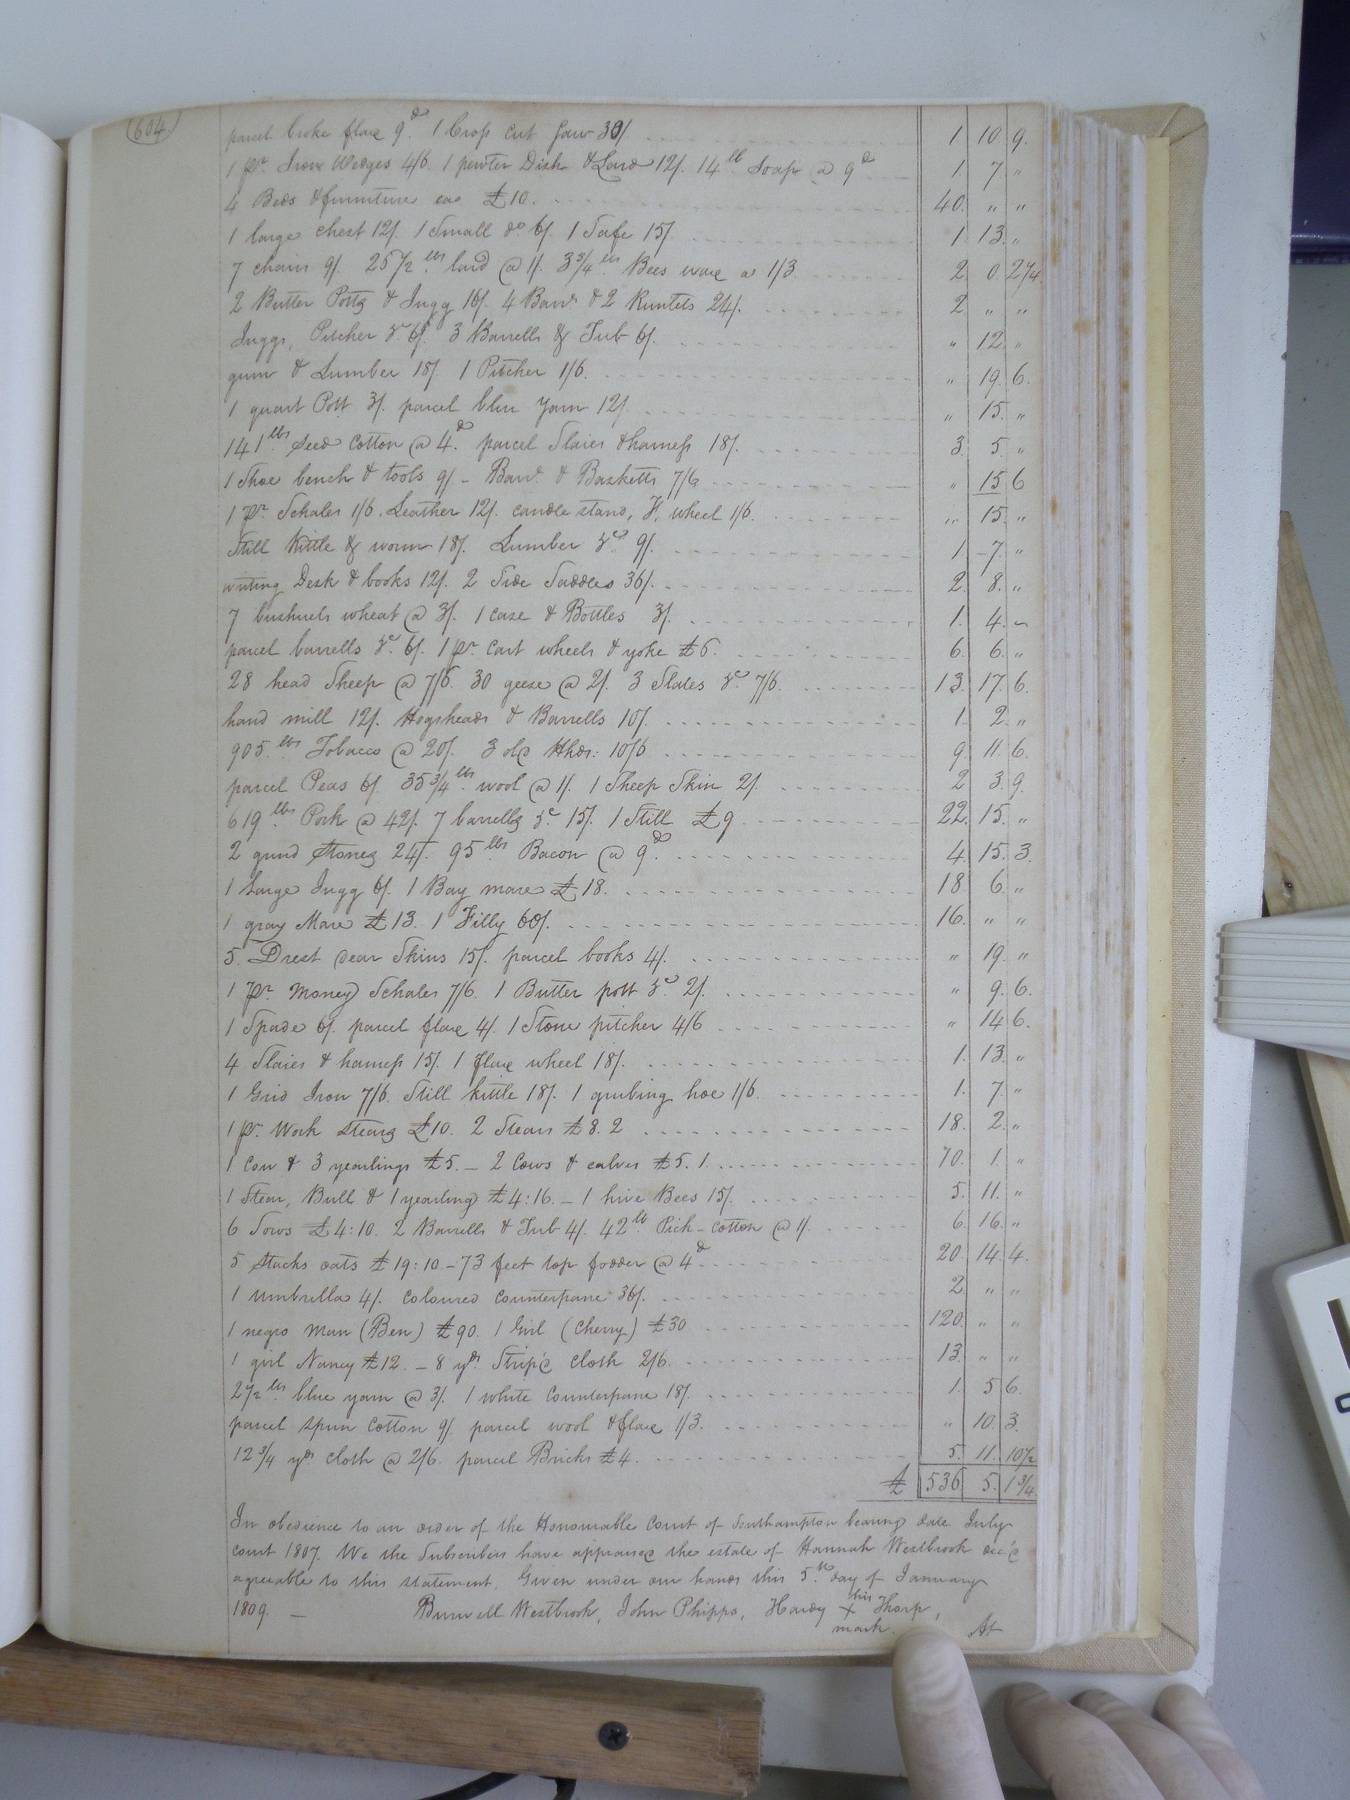 604.
parcel broke flax 9.d 1 Cross cut saw 30/. 1. 10. 9.
1 pr. Iron Wedges 4/6. 1 pewter Dish & Lard 12/. 14lb Soap @ 9d 1 7 "
4 Beds & furniture ea £10. 40. " "
1 large chest 12/. 1 Small do 6/. 1 Safe 15/. 1. 13. "
7 chairs 9/. 25 1/2 lbs lard @ 1/. 3 3/4 lbs Bees waxe @ 1/3. 2. 0 2 1/4.
2 Butter Potts & Jugg 16/. 4 Barrs & 2 Runlets 24/. 2 " "
Juggs, Pitcher &c 6/. 3 Barrells & Tub 6/. " 12. "
gum & Lumber 18/. 1 Pitcher 1/6. " 19. 6.
1 quart Pott 3/. parcel blue yarn 12/. " 15. "
141 lbs Seed cotton @ 4.d parcel Slaies & harness 18/. 3. 5. "
1 Shoe bench & tools 9/ - Barr. & Basketts 7/6 " 15 6
1 pr. Schales 1/6. Leather 12/. candle stand, F, wheel 1/6. " 15. "
Still Kittle & worm 18/. Lumber &c. 9/. 1. 7. "
writing Desk & books 12/. 2 Side Saddles 36/. 2. 8. "
7 bushuels wheat @ 3/. 1 case & Bottles 3/. 1. 4. "
parcel barrells &c. 6/. 1 pr. Cart wheels & yoke £6. 6. 6. "
28 head Sheep @ 7/6. 30 geese @ 2/. 3 Slates &c 7/6. 13. 17. 6.
hand mill 12/. Hogsheads & Barrells 10/. 1. 2. "
905 lbs Tobacco @ 20/. 3 old Hhds: 10/6 9. 11. 6.
parcel Peas 6/. 35 3/4 lbs wool @ 1/. 1 Sheep Skin 2/. 2 3. 9.
619 lbs Pork @ 42/. 7 barrells &c 15/. 1 Still £9 22. 15. "
2 grind Stones 24/. 95 lbs Bacon @ 9.d 4. 15. 3.
1 Large Jugg 6/. 1 Bay mare £18. 18. 6. "
1 gray Mare £13. 1 Filly 60/. 16. " "
5. Drest dear Skins 15/. parcel books 4/. " 19. "
1 pr. Money Schales 7/6. 1 Butter pott &c 2/. " 9. 6.
1 Spade 6/. parcel flax 4/. 1 Stone pitcher 4/6 " 14 6.
4 Slaies & harness 15/. 1 flax wheel 18/. 1. 13. "
1 Grid Iron 7/6. Still kittle 18/. 1 grubing hoe 1/6. 1. 7. "
1 pr. Work Stears £10. 2 Stears £8.2 18. 2. "
1 Cow & 3 yearlings £5. - 2 Cows & calves £5.1. 70. 1. "
1 Stear, Bull & 1 yearling £4:16. - 1 hive Bees 15/. 5. 11. "
6 Sows £4:10. 2 Barrells & Tub 4/. 42 lb Pick-cotton @ 1/. 6. 16. "
5 Stacks oats £19:10. - 73 feet top fodder @ 4d. 20. 14. 4.
1 umbrella 4/. coloured counterpane 36/. 2. " "
1 negro man (Ben) £90. 1 Girl (Cherry) £30 120. " "
1 girl Nancy £12. - 8 yds. Strip'd cloth 2/6. 13. " "
2 1/2 lbs blue yarn @ 3/. 1 white counterpane 18/. 1. 5 6.
parcel spun cotton 9/. parcel wool & flax 1/3. " 10. 3.
12 3/4 yds cloth @ 2/6. parcel Bricks £4. 5. 11. 10 1/2
£ 536 5. 1 3/4.
In obedience to an order of the Honourable Court of Southampton bearing date July
court 1807. We the Subscribers have appraised the estate of Hannah Westbrook dec'd
agreeable to this statement. Given under our hands this 5.th day of January
1809. - Burwell Westbrook, John Phipps, Hardy his X Thorp,
mark. At